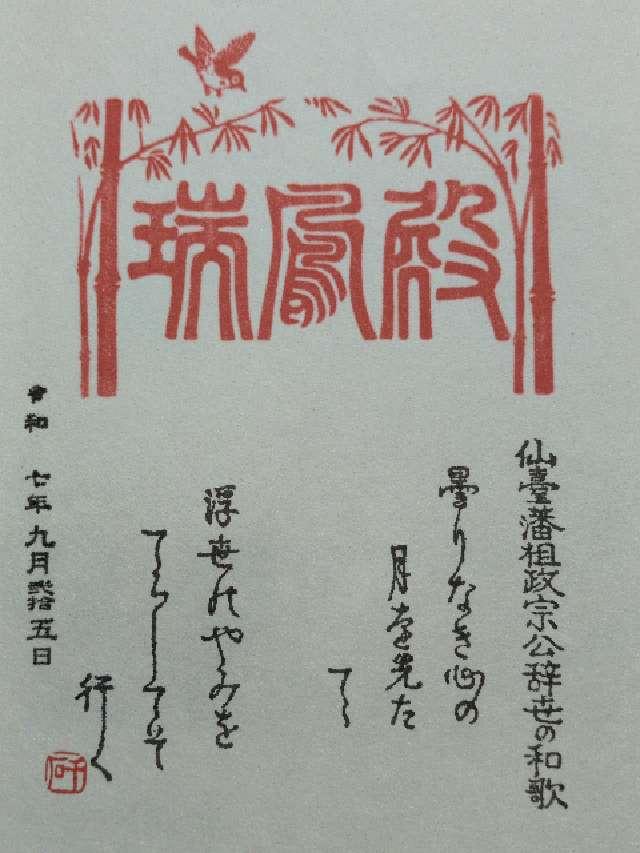 瑞鳳殿
仙臺藩祖政宗公辞世の和歌
曇りなき心の
月を先た
てゝ
浮世のやみを
てらしてそ
行く
令和 七年九月弐拾五日